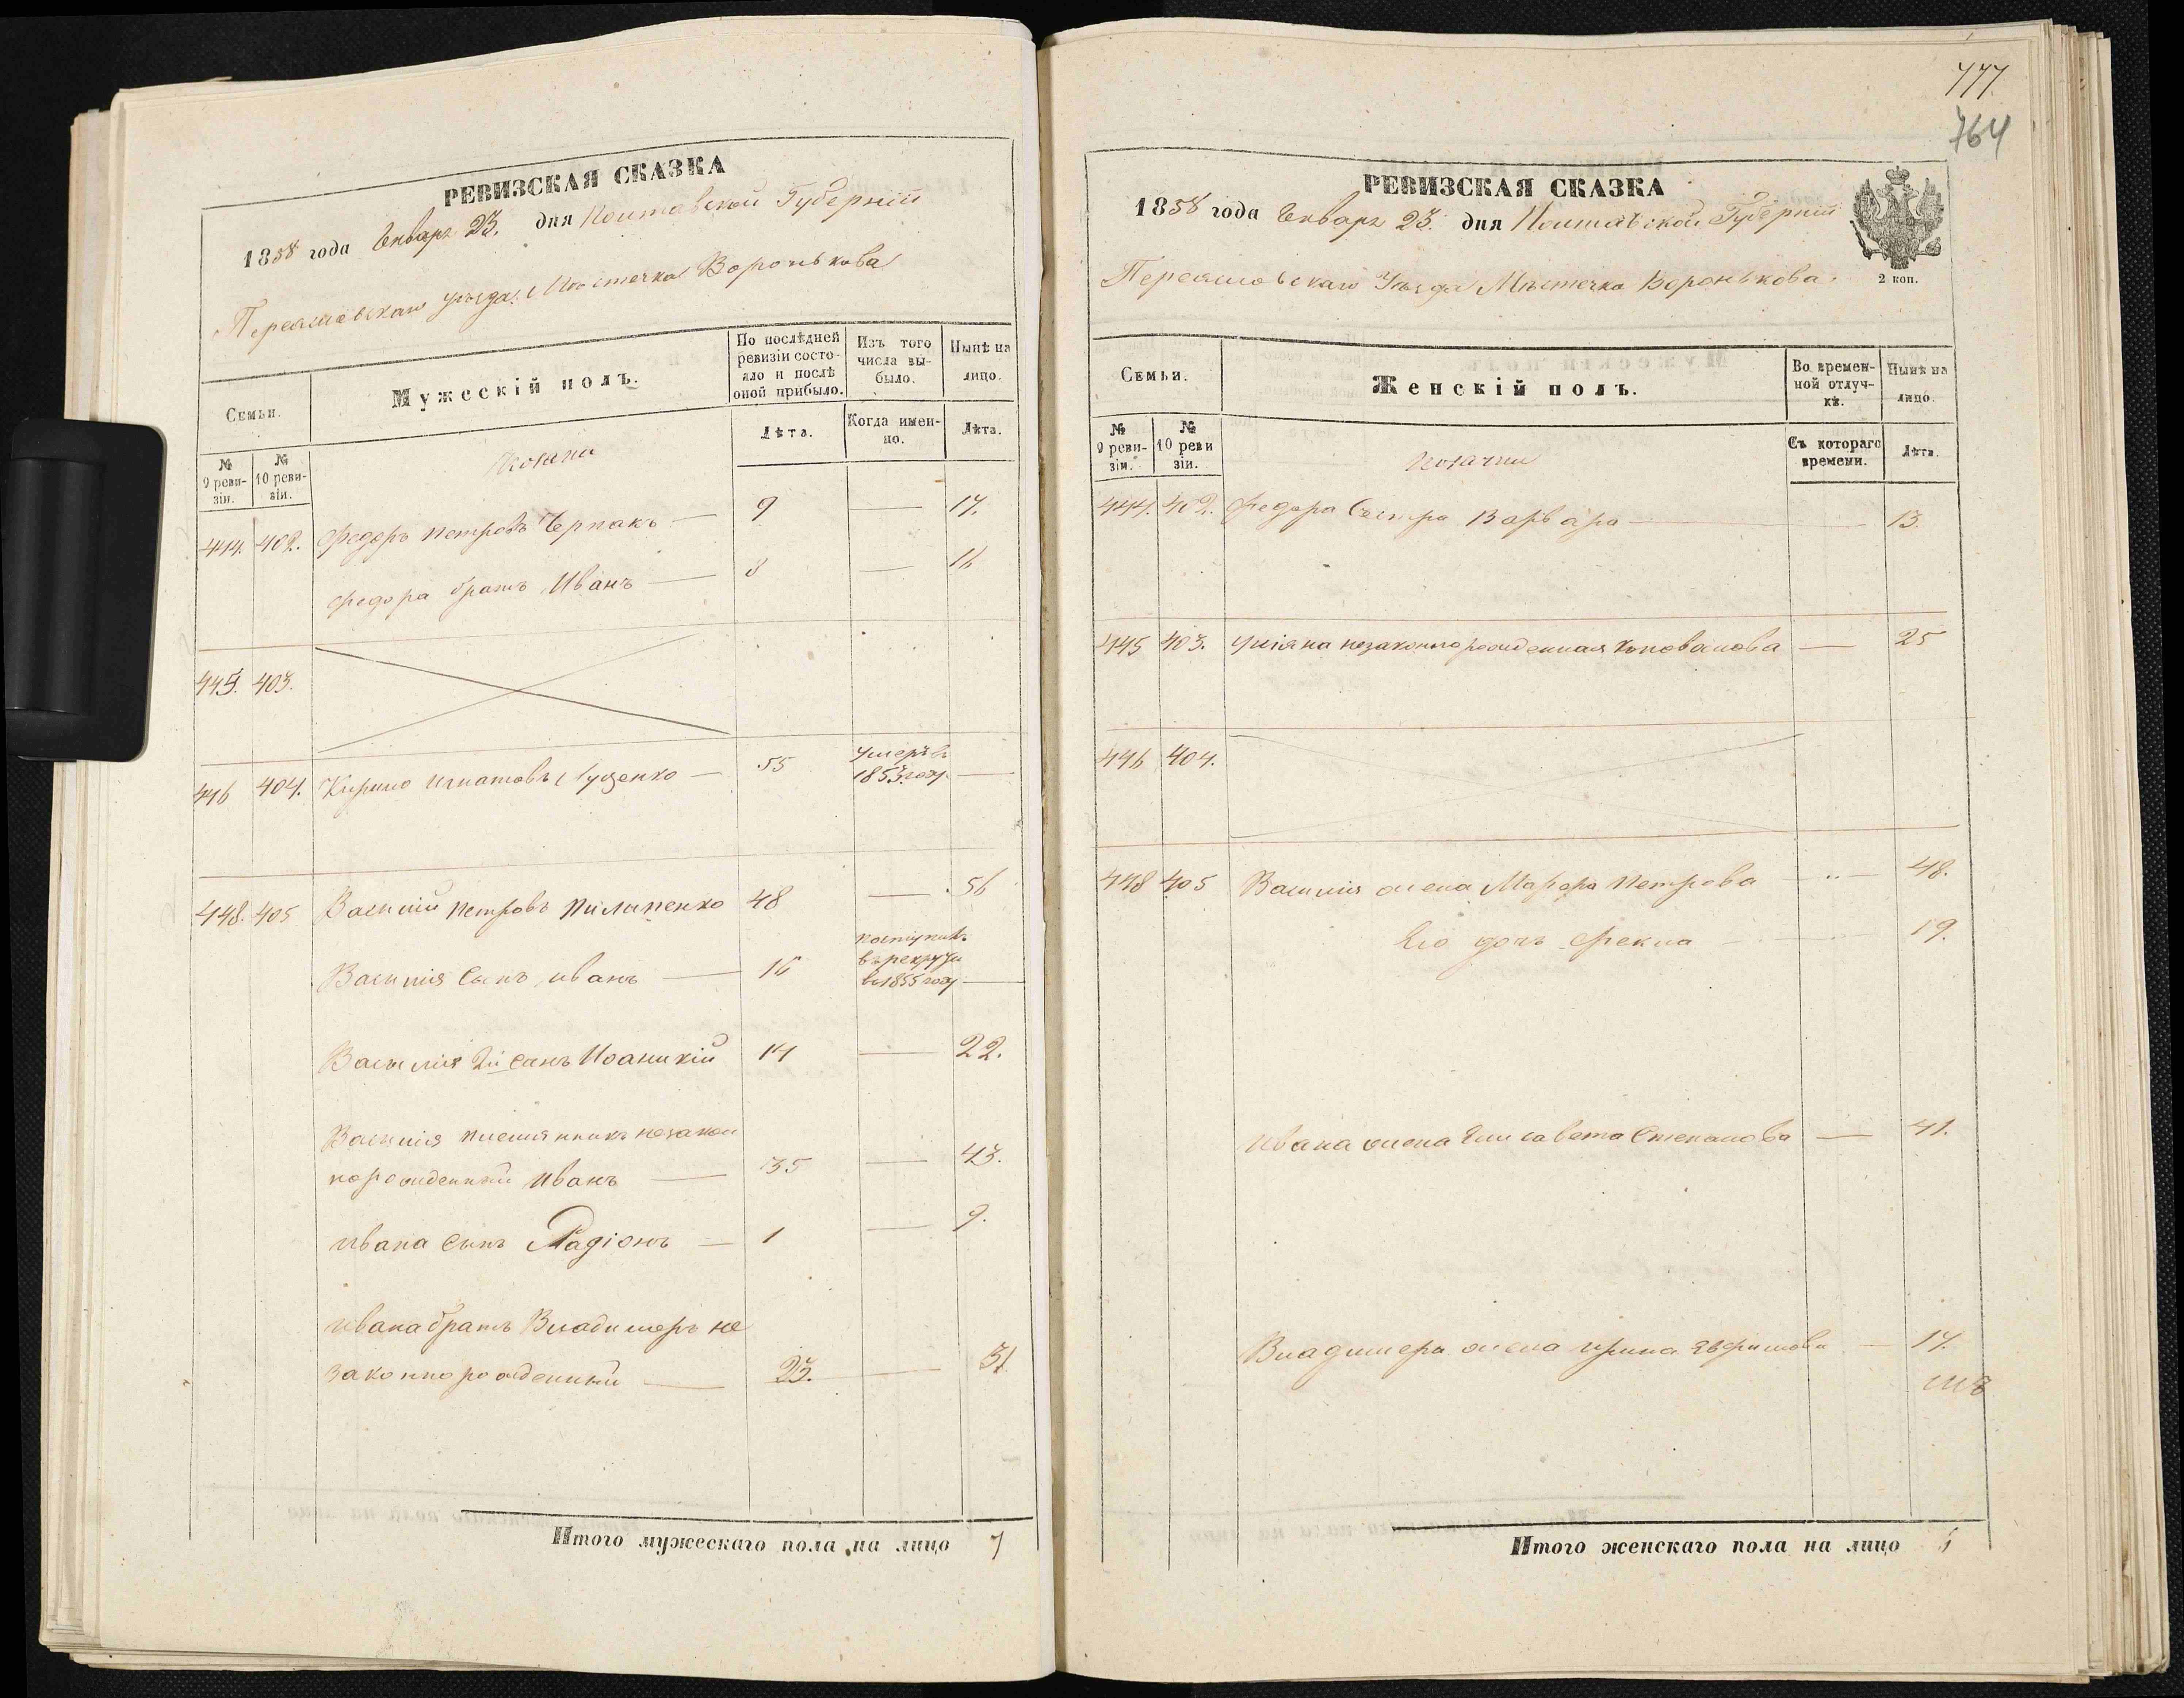 РЕВИЗСКАЯ СКАЗКА
1858 года Генваря 23. дня Полтавской Губерніи
Переяславскаго уѣзда Мѣстечка Воронькова
Семьи.
Мужескій полъ.
По послѣдней ревизіи состояло и послѣ оной прибыло.
Изъ того числа выбыло.
Нынѣ на лицо.
Лѣта.
Когда именно.
Лѣта.
№ 9 ревизіи.
№ 10 ревизіи.
Козаки
444. 402. Федоръ Петровъ Черпакъ — 9 — 17.
Федора братъ Иванъ — 8 — 16
445. 403.
446 404. Кирило Игнатовъ Луценко — 55 умеръ въ 1853 году —
448. 405 Василий Петровъ Пилипенко 48 — 56
Василия Сынъ иванъ — 16 поступилъ въ рекруты въ 1855 году —
Василия 2й сынъ Иоаникій 14 — 22.
Василия племянникъ незакон
норожденный иванъ — 35 — 43.
ивана сынъ Радіонъ — 1 — 9.
ивана братъ Владимеръ не
законнорожденный — 23. — 31
Итого мужескаго пола на лицо 7
777.
764
РЕВИЗСКАЯ СКАЗКА
1858 года Генваря 23. дня Полтавской Губерніи
Переяславскаго Уѣзда Мѣстечка Воронькова.
2 коп.
Семьи.
Женскій полъ.
Во временной отлучкѣ.
Нынѣ на лицо.
№ 9 ревизіи.
№ 10 ревизіи.
Съ котораго времени.
Лѣта.
Козачки
444. 402. Федора Сестра Варвара — 13.
445 403. улiяна незаконнорожденная Коновалова — 25
446 404.
448 405 Василия жена Марфа Петрова — 48.
Его дочь Фекла — 19.
ивана жена Елисавета Степанова — 41.
Владимера жена ирина Ефимова — 17.
Итого женскаго пола на лицо 6